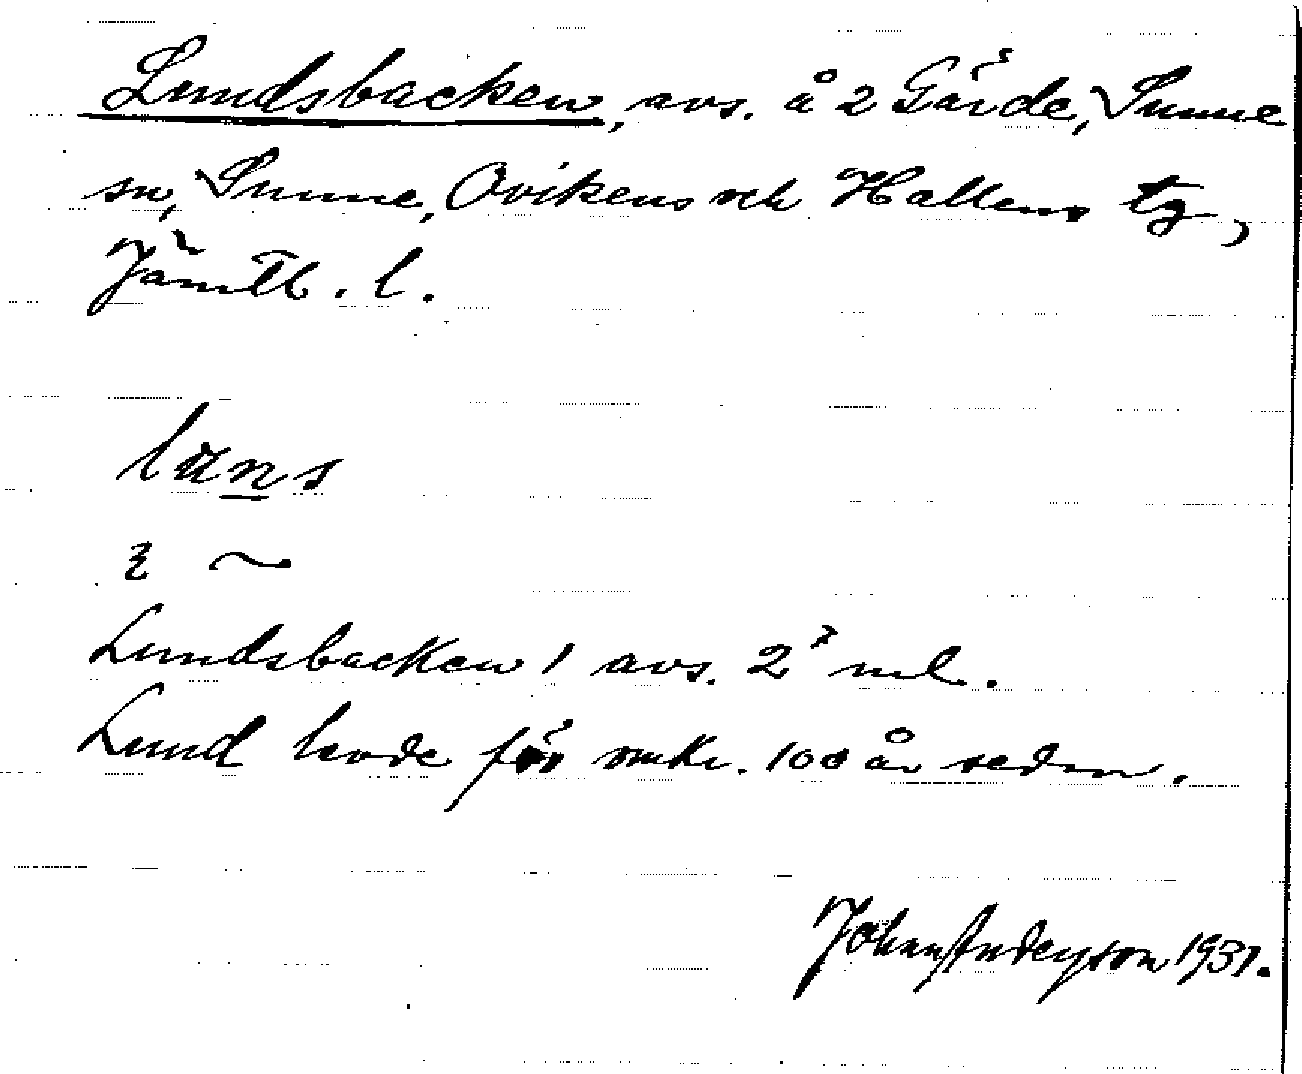 Lundsbacken, avs. å 2 Gärde, Sunne
sn, Sunne, Ovikens och Hallens tg,
Jämtl. l.
~
Lundsbacken 1 avs. 2 ml.
Lund levde för omkr. 100 år sedan.
Johan Anderson 1931.